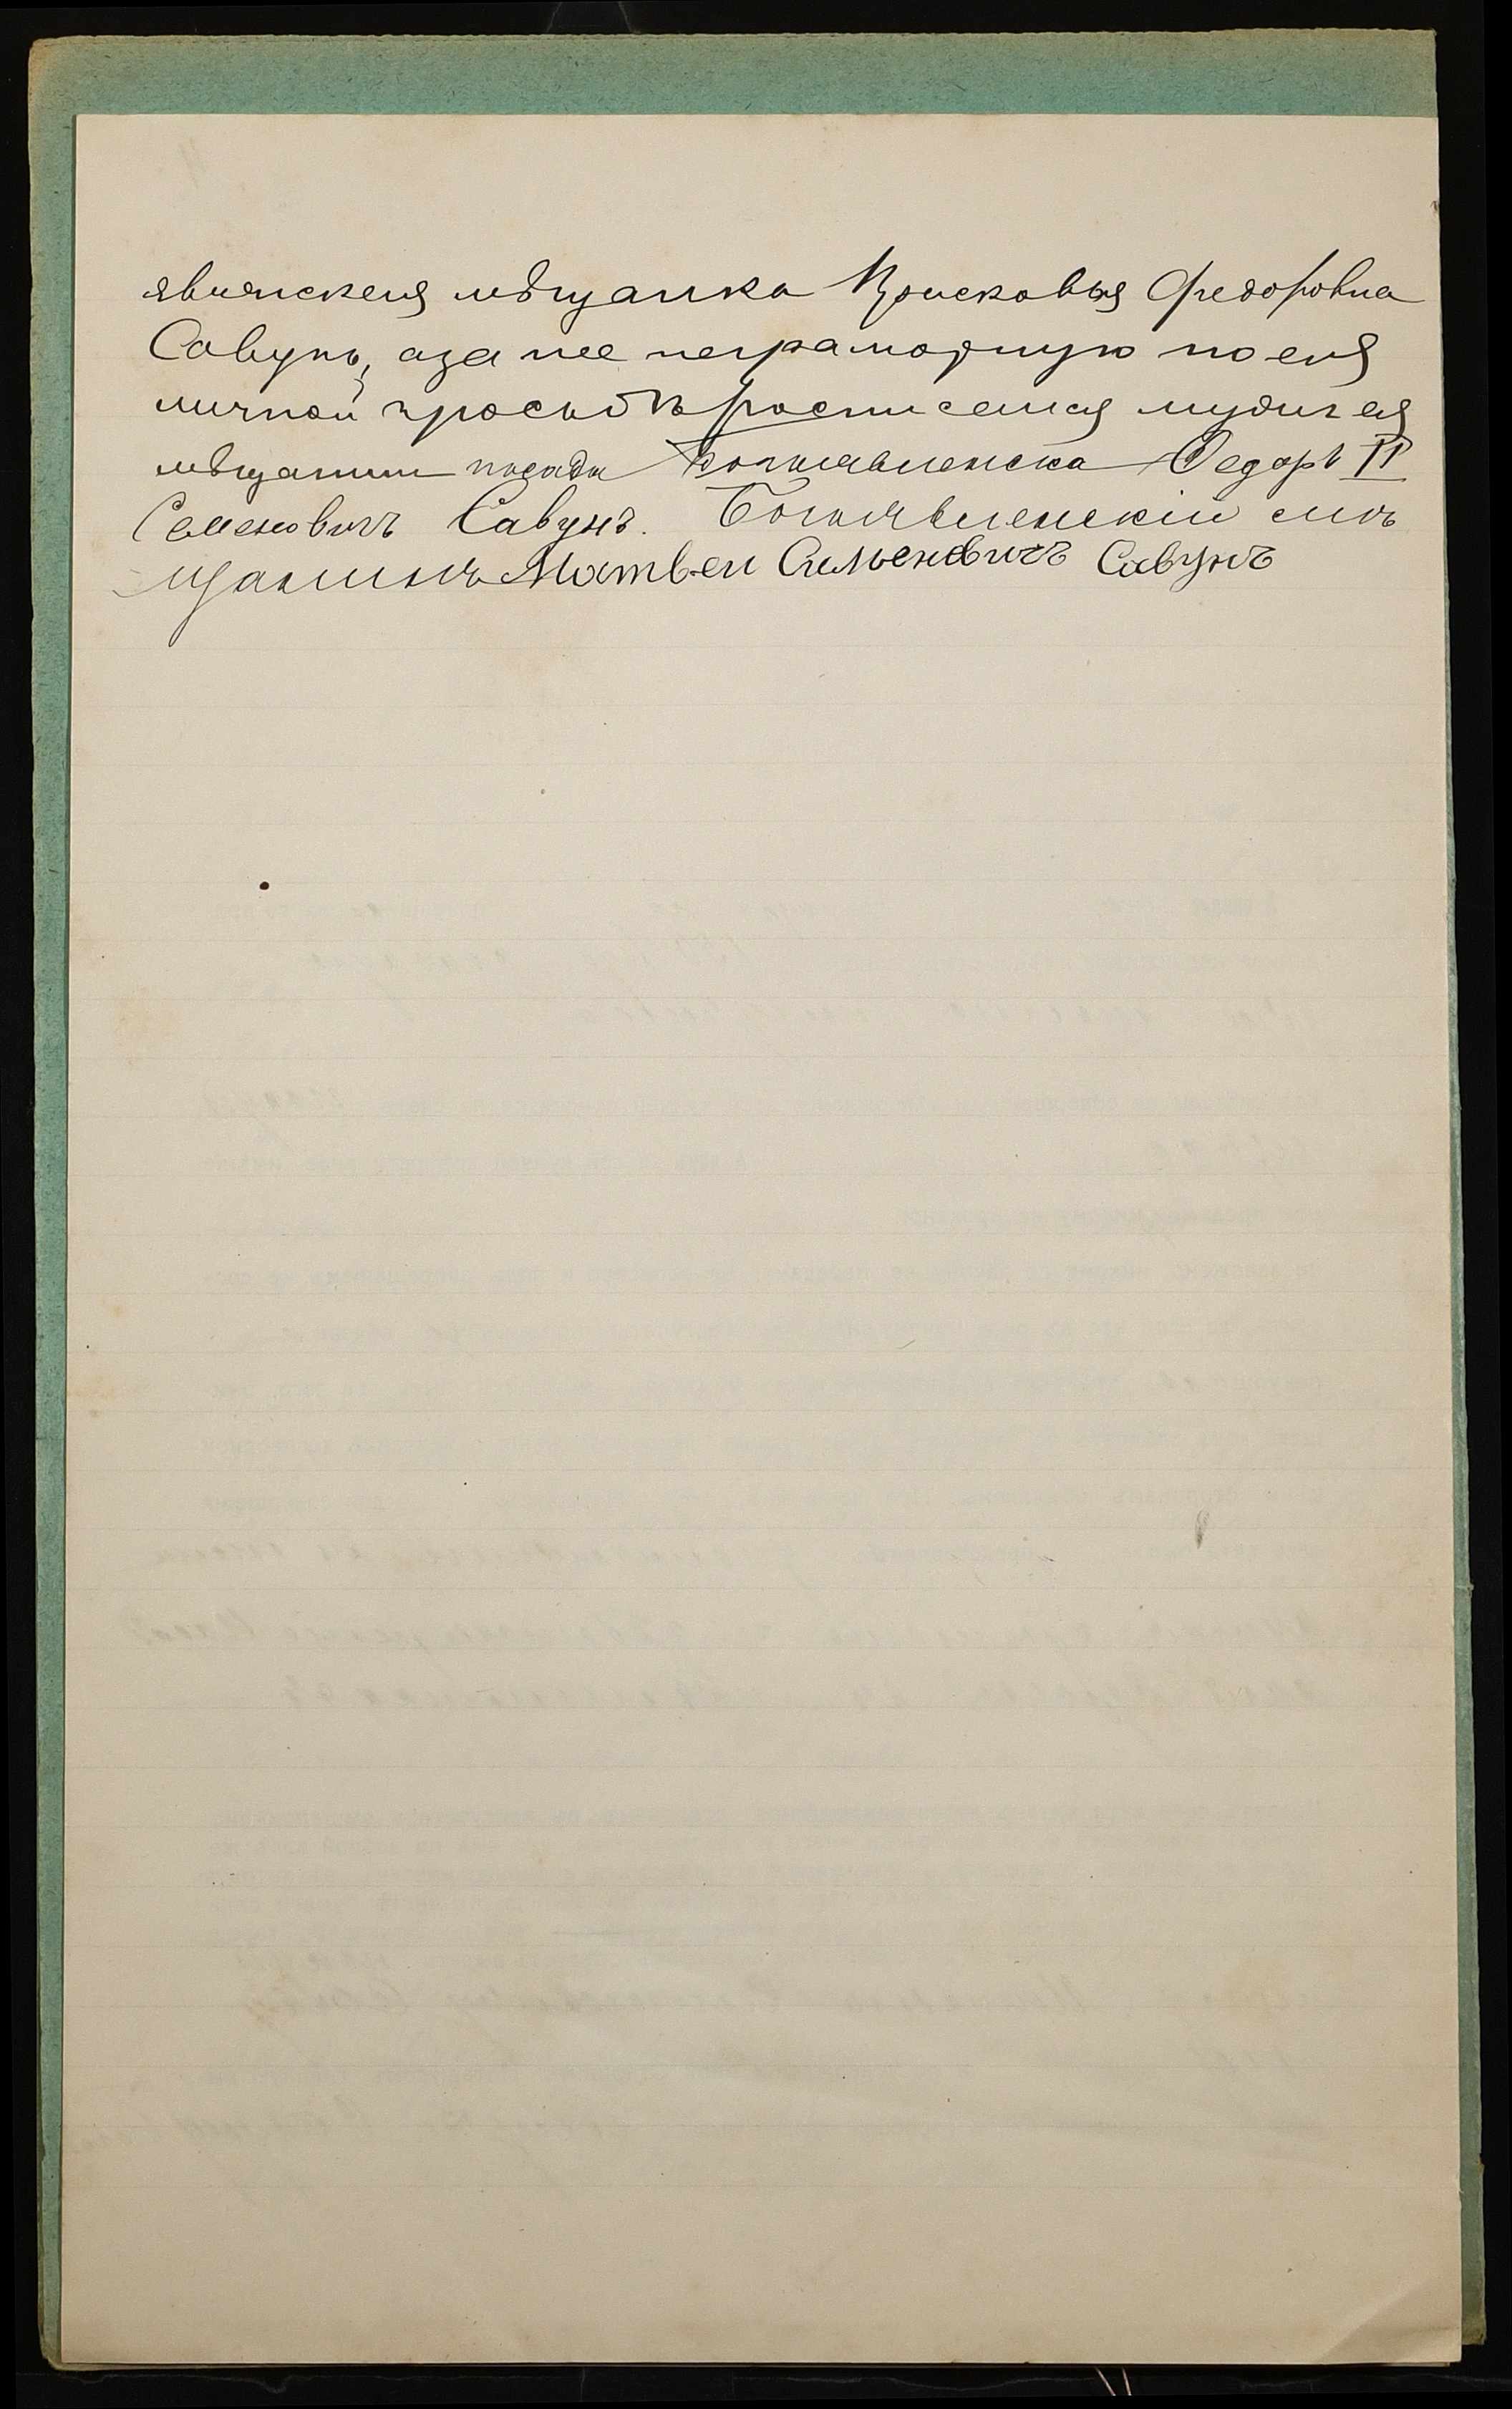 явленская мѣщанка Просковья Федоровна
Савунъ, а за нее неграмотную по ея
личной прозьбѣ росписался мужъ ея
мѣщанин посада Богоявленска Федоръ II
Семеновичъ Савунъ. Богоявленскій
щанинъ Матвеи Семеновичъ Савунъ